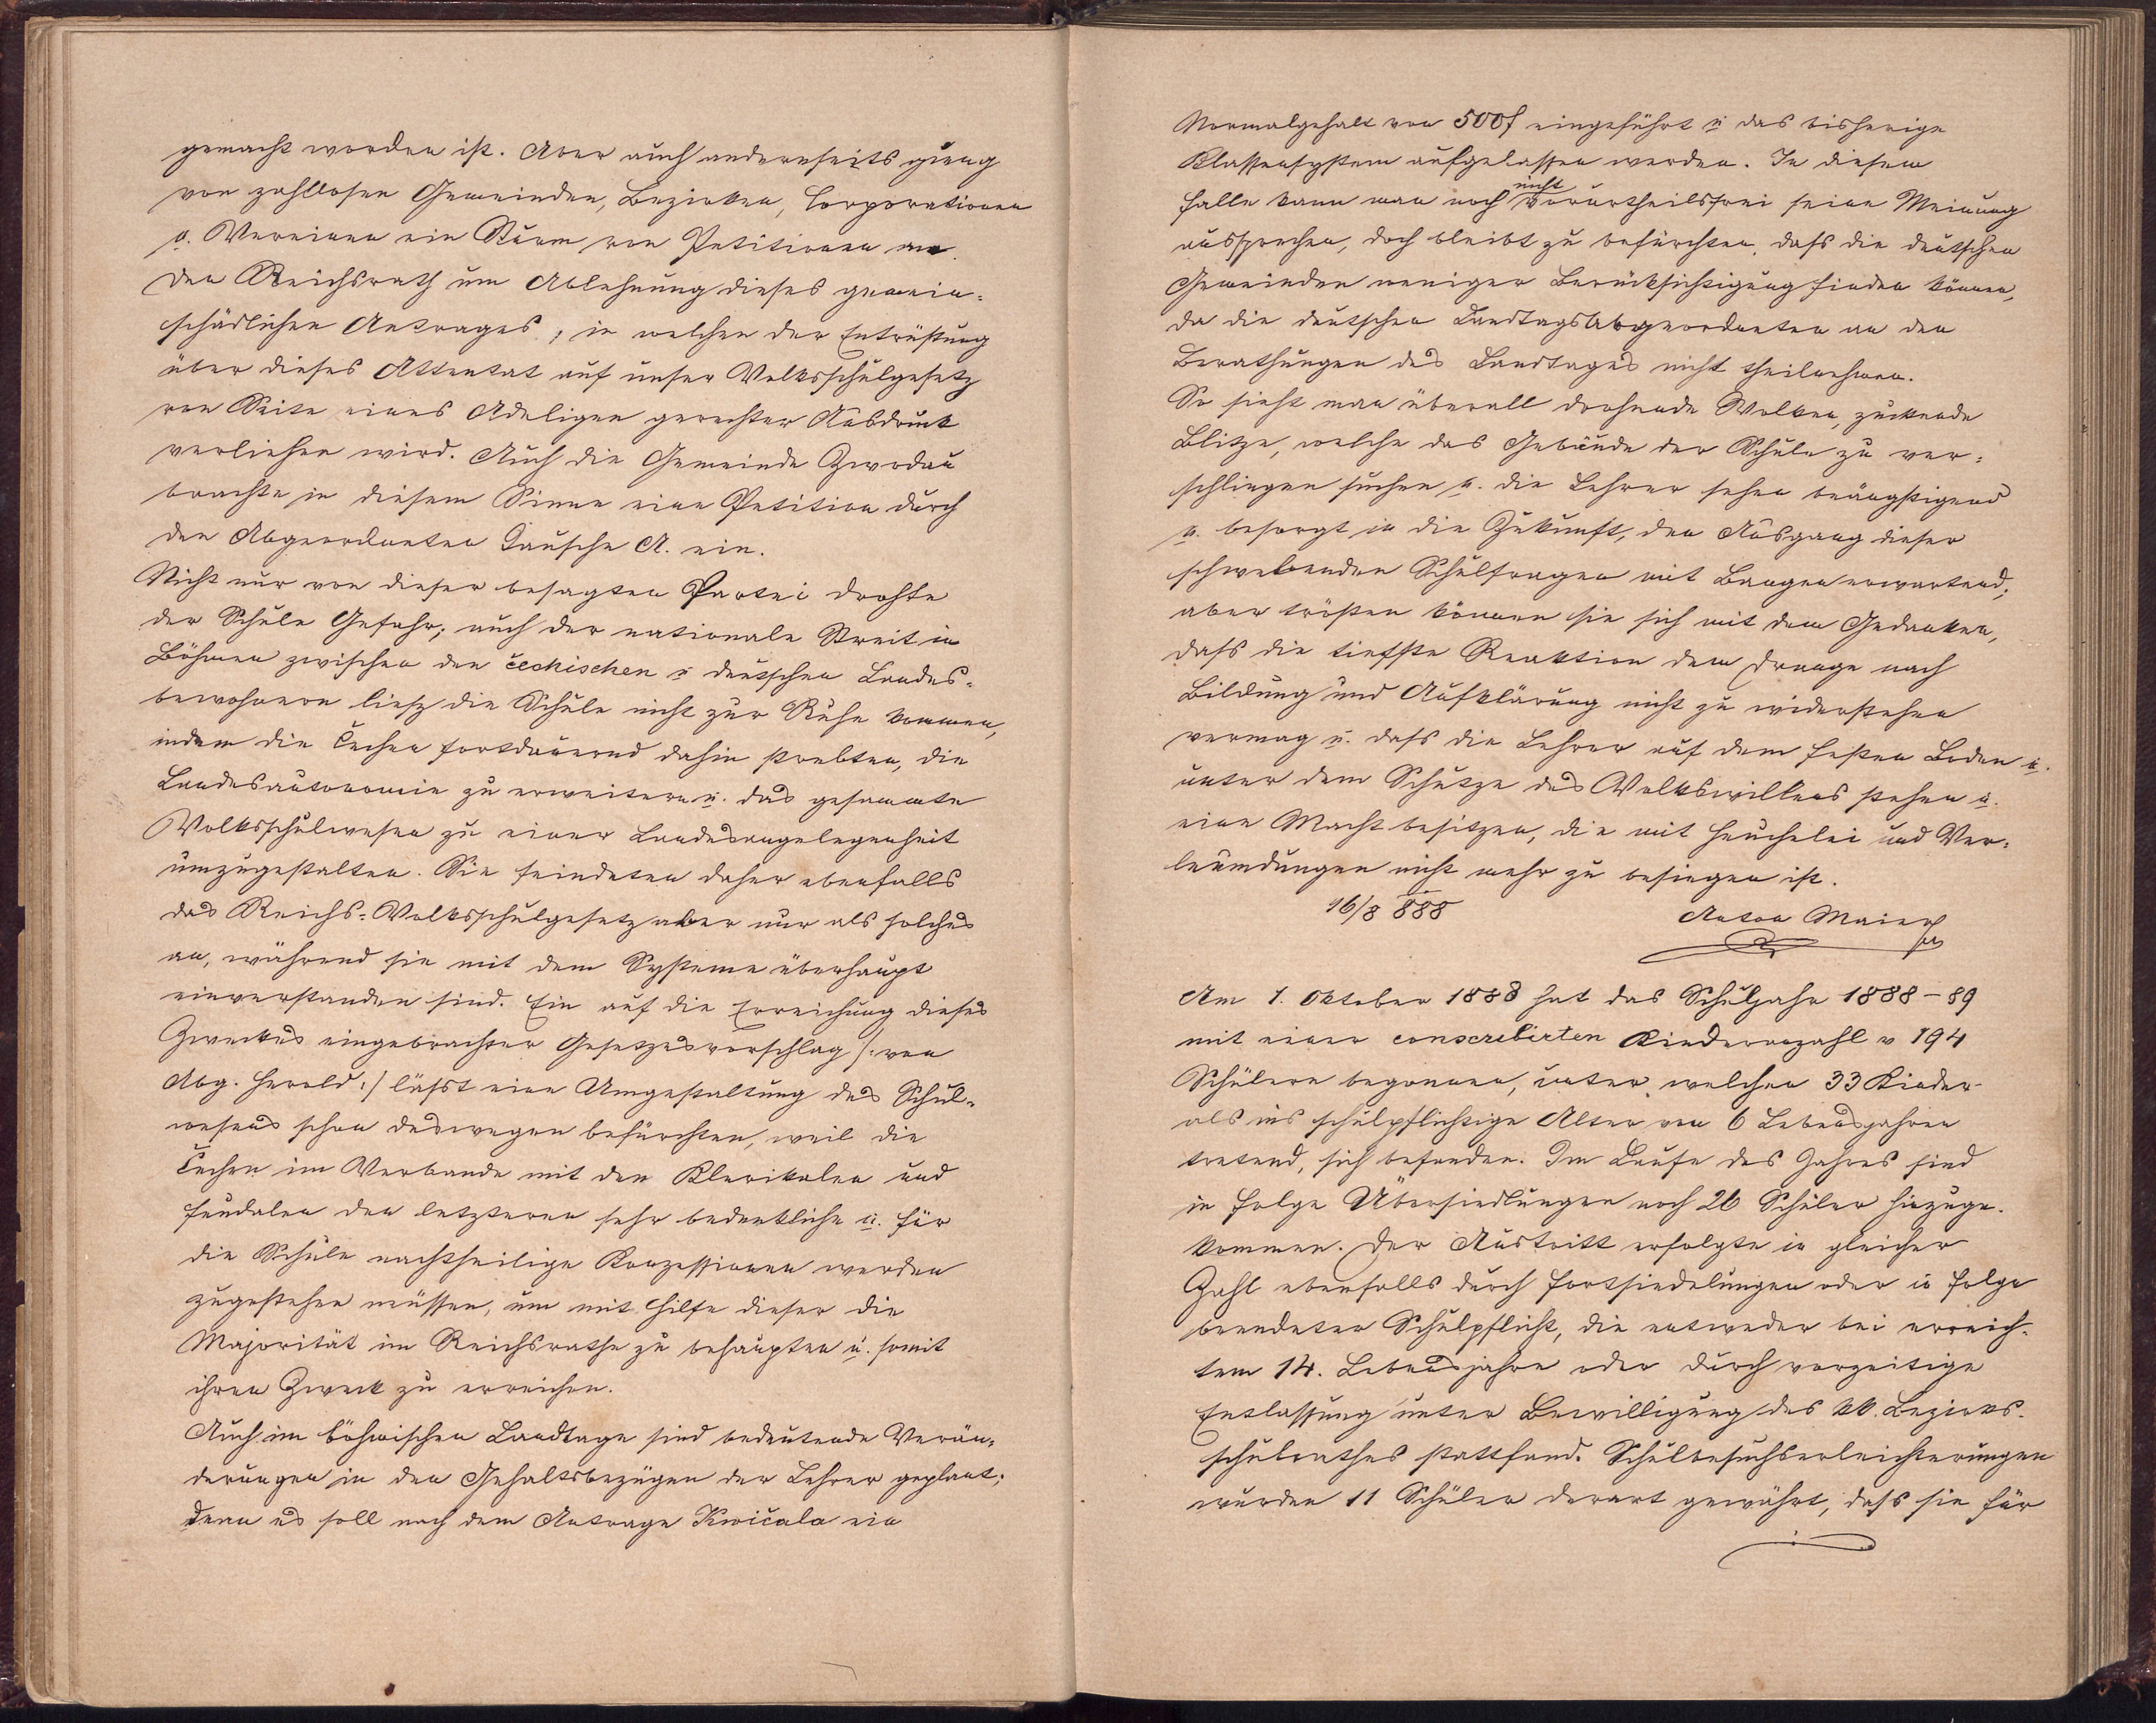 gemacht worden ist. Aber auch andererseits gieng
von zahllosen Gemeinden, Bezirken, Corporationen
u. Vereinen ein Sturm von Petitionen an
den Reichsrath um Ablehnung dieses gemein-
schädlichen Antrages, in welchen der Entrüstung
über dieses Attentat auf unser Volksschulgesetz
von Seite eines Adeligen gerechter Ausdruck
verliehen wird. Auch die Gemeinde Zwodau
brachte in diesem Sinne eine Petition durch
den Abgeordneten Tausche A. ein.
Nicht nur von dieser besagten Partei drohte
der Schule Gefahr; auch der nationale Streit in
Böhmen zwischen den čechischen u deutschen Landes-
bewohnern liesz die Schule nicht zur Ruhe kommen,
indem die Čechen fortdauernd dahin strebten, die
Landesautonomie zu erweitern u. das gesammte
Volksschulwesen zu einer Landesangelegenheit
umzugestalten. Sie feindeten daher ebenfalls
das Reichs-Volksschulgesetz aber nur als solches
an, während sie mit dem Systeme überhaupt
einverstanden sind. Ein auf die Erreichung dieses
Zweckes eingebrachter Gesetzesvorschlag /: von
Abg. Herold :/ läßt eine Umgestaltung des Schul-
wesens schon deswegen befürchten, weil die
Čechen im Verbande mit den Klerikalen und
Feudalen den letzteren sehr bedenkliche u. für
die Schule nachtheilige Konzessionen werden
zugestehen müssen, um mit Hilfe dieser die
Majorität im Reichsrathe zu behaupten u. somit
ihren Zweck zu erreichen.
Auch im böhmischen Landtage sind bedeutende Verän-
derungen in den Gehaltsbezügen der Lehrer geplant;
denn es soll nach dem Antrage Kwičala ein
Normalgehalt von 500f eingeführt u das bisherige
Klassensystem aufgelassen werden. In diesem
Falle kann man noch nicht vorurtheilsfrei seine Meinung
aussprechen, doch bleibt zu befürchten, dass die deutschen
Gemeinden weniger Berücksichtigung finden können,
da die deutschen Landtagsabgeordneten an den
Berathungen des Landtages nicht theilnehmen.
So sieht man überall drohende Wolken, zuckende
Blitze, welche das Gebäude der Schule zu ver-
schlingen suchen u. die Lehrer sehen beängstigend
u. besorgt in die Zukunft, den Ausgang dieser
schwebenden Schulfragen mit Bangen erwartend;
aber trösten können sie sich mit dem Gedanken,
dass die tiefste Reaktion dem Drange nach
Bildung und Aufklärung nicht zu widerstehen
vermag u. dass die Lehrer auf dem festen Boden u.
unter dem Schutze des Volkswillens stehen u.
eine Macht besitzen, die mit Heuchelei und Ver-
leumdungen nicht mehr zu besiegen ist.
16/8 888 Anton Maier
Am 1. Oktober 1888 hat das Schuljahr 1888-89
mit einer conscribirten Kinderanzahl v 194
Schülern begonnen, unter welchen 33 Kinder
als ins schulpflichtige Alter von 6 Lebensjahren
tretend, sich befanden. Im Laufe des Jahres sind
in Folge Übersiedlungen noch 26 Schüler hinzuge-
kommen. Der Austritt erfolgte in gleicher
Zahl ebenfalls durch Fortsiedelungen oder in Folge
beendeter Schulpflicht, die entweder bei erreich-
tem 14. Lebensjahre oder durch vorzeitige
Entlassung unter Bewilligung des kk. Bezirks-
schulrathes stattfand. Schulbesuchserleichterungen
wurden 11 Schüler derart gewährt, dass sie für